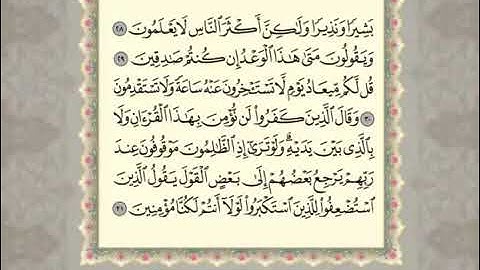 بَشِيرًا وَنَذِيرًا وَلَٰكِنَّ أَكْثَرَ ٱلنَّاسِ لَا يَعْلَمُونَ ٢٨
وَيَقُولُونَ مَتَىٰ هَٰذَا ٱلْوَعْدُ إِن كُنتُمْ صَٰدِقِينَ ٢٩
قُل لَّكُم مِّيعَادُ يَوْمٍ لَّا تَسْتَـْٔخِرُونَ عَنْهُ سَاعَةً وَلَا تَسْتَقْدِمُونَ
٣٠ وَقَالَ ٱلَّذِينَ كَفَرُوا۟ لَن نُّؤْمِنَ بِهَٰذَا ٱلْقُرْءَانِ وَلَا
بِٱلَّذِى بَيْنَ يَدَيْهِ ۗ وَلَوْ تَرَىٰٓ إِذِ ٱلظَّٰلِمُونَ مَوْقُوفُونَ عِندَ
رَبِّهِمْ يَرْجِعُ بَعْضُهُمْ إِلَىٰ بَعْضٍ ٱلْقَوْلَ يَقُولُ ٱلَّذِينَ
ٱسْتُضْعِفُوا۟ لِلَّذِينَ ٱسْتَكْبَرُوا۟ لَوْلَآ أَنتُمْ لَكُنَّا مُؤْمِنِينَ ٣١